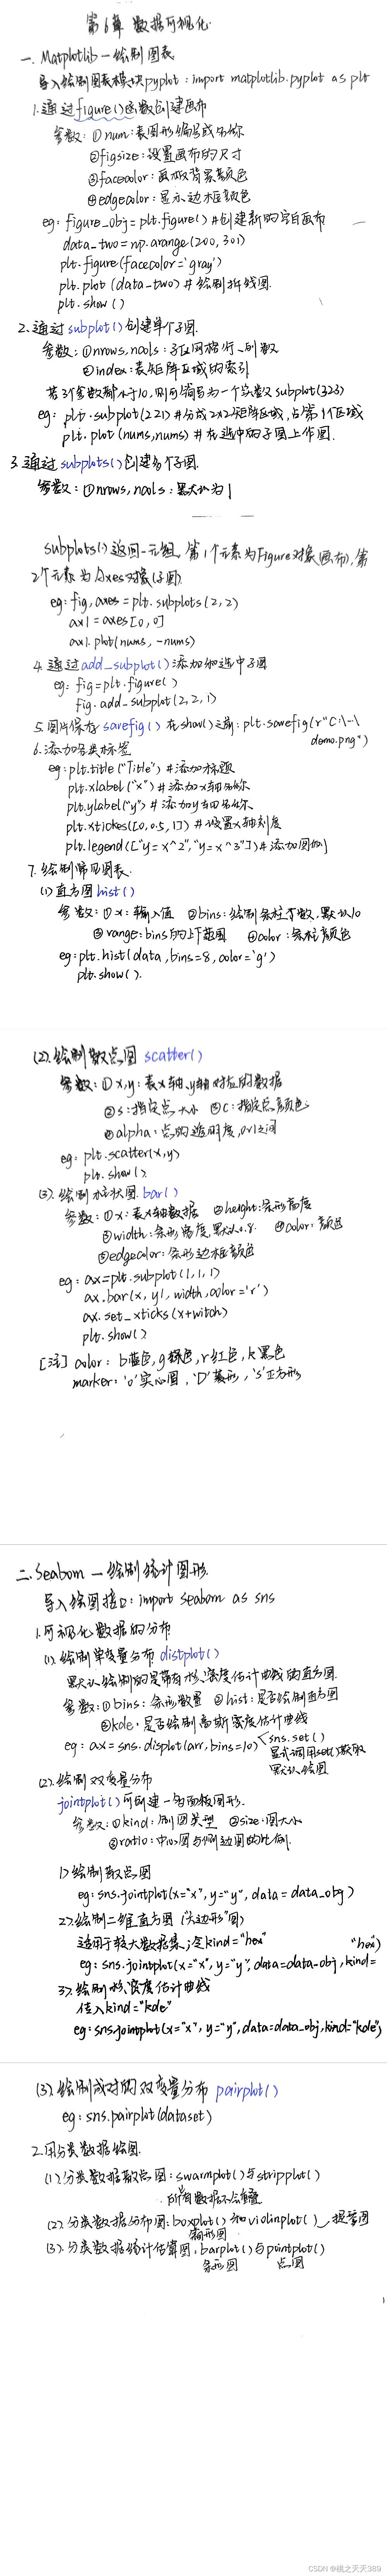 第6章 数据可视化
一. Matplotlib — 绘制图表
导入绘制图表模块pyplot : import matplotlib.pyplot as plt
1. 通过figure()函数创建画布
参数: ①num: 表图形编号或名称
②figsize: 设置画布的尺寸
③facecolor: 画板背景颜色
④edgecolor: 显示边框颜色
eg: figure_obj = plt.figure() #创建新的空白画布
data_two = np.arange(200, 301)
plt.figure(facecolor='gray')
plt.plot (data-two) # 绘制折线图.
plt.show ()
2. 通过subplot()创建单个子图.
参数: ①nrows, ncols : 子区网格行、列数
②index: 表矩阵区域的索引
若3个参数都小于10, 则可简写为一个实数 subplot(323)
eg: plt.subplot(221) #分成2x2矩阵区域, 占第1个区域
plt.plot (nums,nums) # 在选中的子图上作图.
3. 通过subplots()创建多个子图.
参数: ①nrows, ncols : 默认为1
subplots()返回一元组, 第1个元素为Figure对象(画布), 第
2个元素为Axes对象(子图).
eg: fig, axes = plt. subplots(2, 2)
ax1 = axes[0, 0]
ax1. plot(nums, -nums)
4. 通过add_subplot()添加和选中子图
eg: fig=plt.figure( )
fig. add_subplot(2, 2, 1)
5. 图片保存 savefig() 在show()之前: plt.savefig(r"C:\…\
demo.png")
6. 添加各类标签
eg: plt.title ("Title") # 添加标题
plt.xlabel ("x") # 添加x轴名称
plt.ylabel("y") # 添加y轴名称
plt.xticks([0, 0.5, 1]) # 设置x轴刻度
plt.legend(["y= x^2", "y= x^3"]) # 添加图例
7. 绘制常见图表.
(1) 直方图 hist()
参数: ①x: 输入值 ②bins: 绘制条柱个数, 默认10
③range: bins的上下范围 ④color : 条柱颜色
eg: plt.hist(data, bins=8, color='g')
plt.show().
(2). 绘制散点图 scatter()
参数: ①x,y: 表x轴、y轴对应的数据
②s: 指定点大小 ③c: 指定点颜色
④alpha: 点的透明度, 0~1之间
eg: plt.scatter(x,y)
plt. show().
(3). 绘制柱状图. bar()
参数: ①x: 表x轴数据 ②height: 条形高度
③width: 条形宽度, 默认0.8. ④color: 颜色
⑤edgecolor: 条形边框颜色
eg: ax=plt.subplot(1, 1, 1)
ax.bar(x, y1, width, color='r')
ax. set_xticks(x+witch)
plt.show()
[注] color: b蓝色, g绿色, r红色, k黑色
marker: 'o'实心圆, 'D'菱形, 's'正方形
二. Seaborn — 绘制统计图形.
导入绘图接口: import seaborn as sns
1. 可视化数据的分布
(1). 绘制单变量分布 distplot()
默认绘制的是带有核密度估计曲线的直方图.
参数: ①bins: 条形数量 ②hist: 是否绘制直方图
③kde: 是否绘制高斯密度估计曲线
eg: ax = sns. displot(arr, bins=10) sns.set()
显式调用set()获取
默认绘图
(2). 绘制双变量分布
jointplot()可创建一多面板图形.
参数: ①kind: 制图类型 ②size: 图大小
③ratio: 中心图与侧边图的比例.
1> 绘制散点图
eg: sns.jointplot(x="x", y="y", data = data_obj)
2> 绘制二维直方图 ("六边形"图)
适用于较大数据集, 令kind="hex"
"hex")
eg: sns. jointplot(x="x", y="y", data=data-obj, kind=
3>. 绘制核密度估计曲线
传入kind="kde"
eg: sns.jointplot(x="x", y="y", data=data_obj, kind="kde")
(3). 绘制成对的双变量分布 pairplot()
eg: sns.pairplot(dataset)
2. 用分类数据绘图.
(1). 分类数据散点图: swarmplot()与stripplot()
所有数据不会重叠
(2). 分类数据分布图: boxplot() 和violinplot() 提琴图
箱形图
(3). 分类数据统计估算图: barplot()与pointplot()
条形图 点图
CSDN @桃之夭夭389